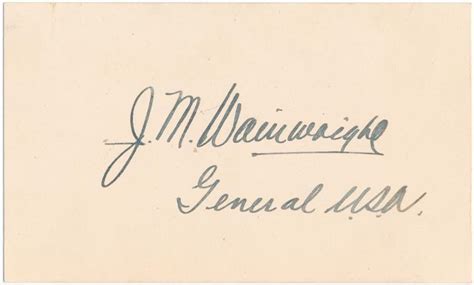 J. M. Wainwright
General U.S.A.